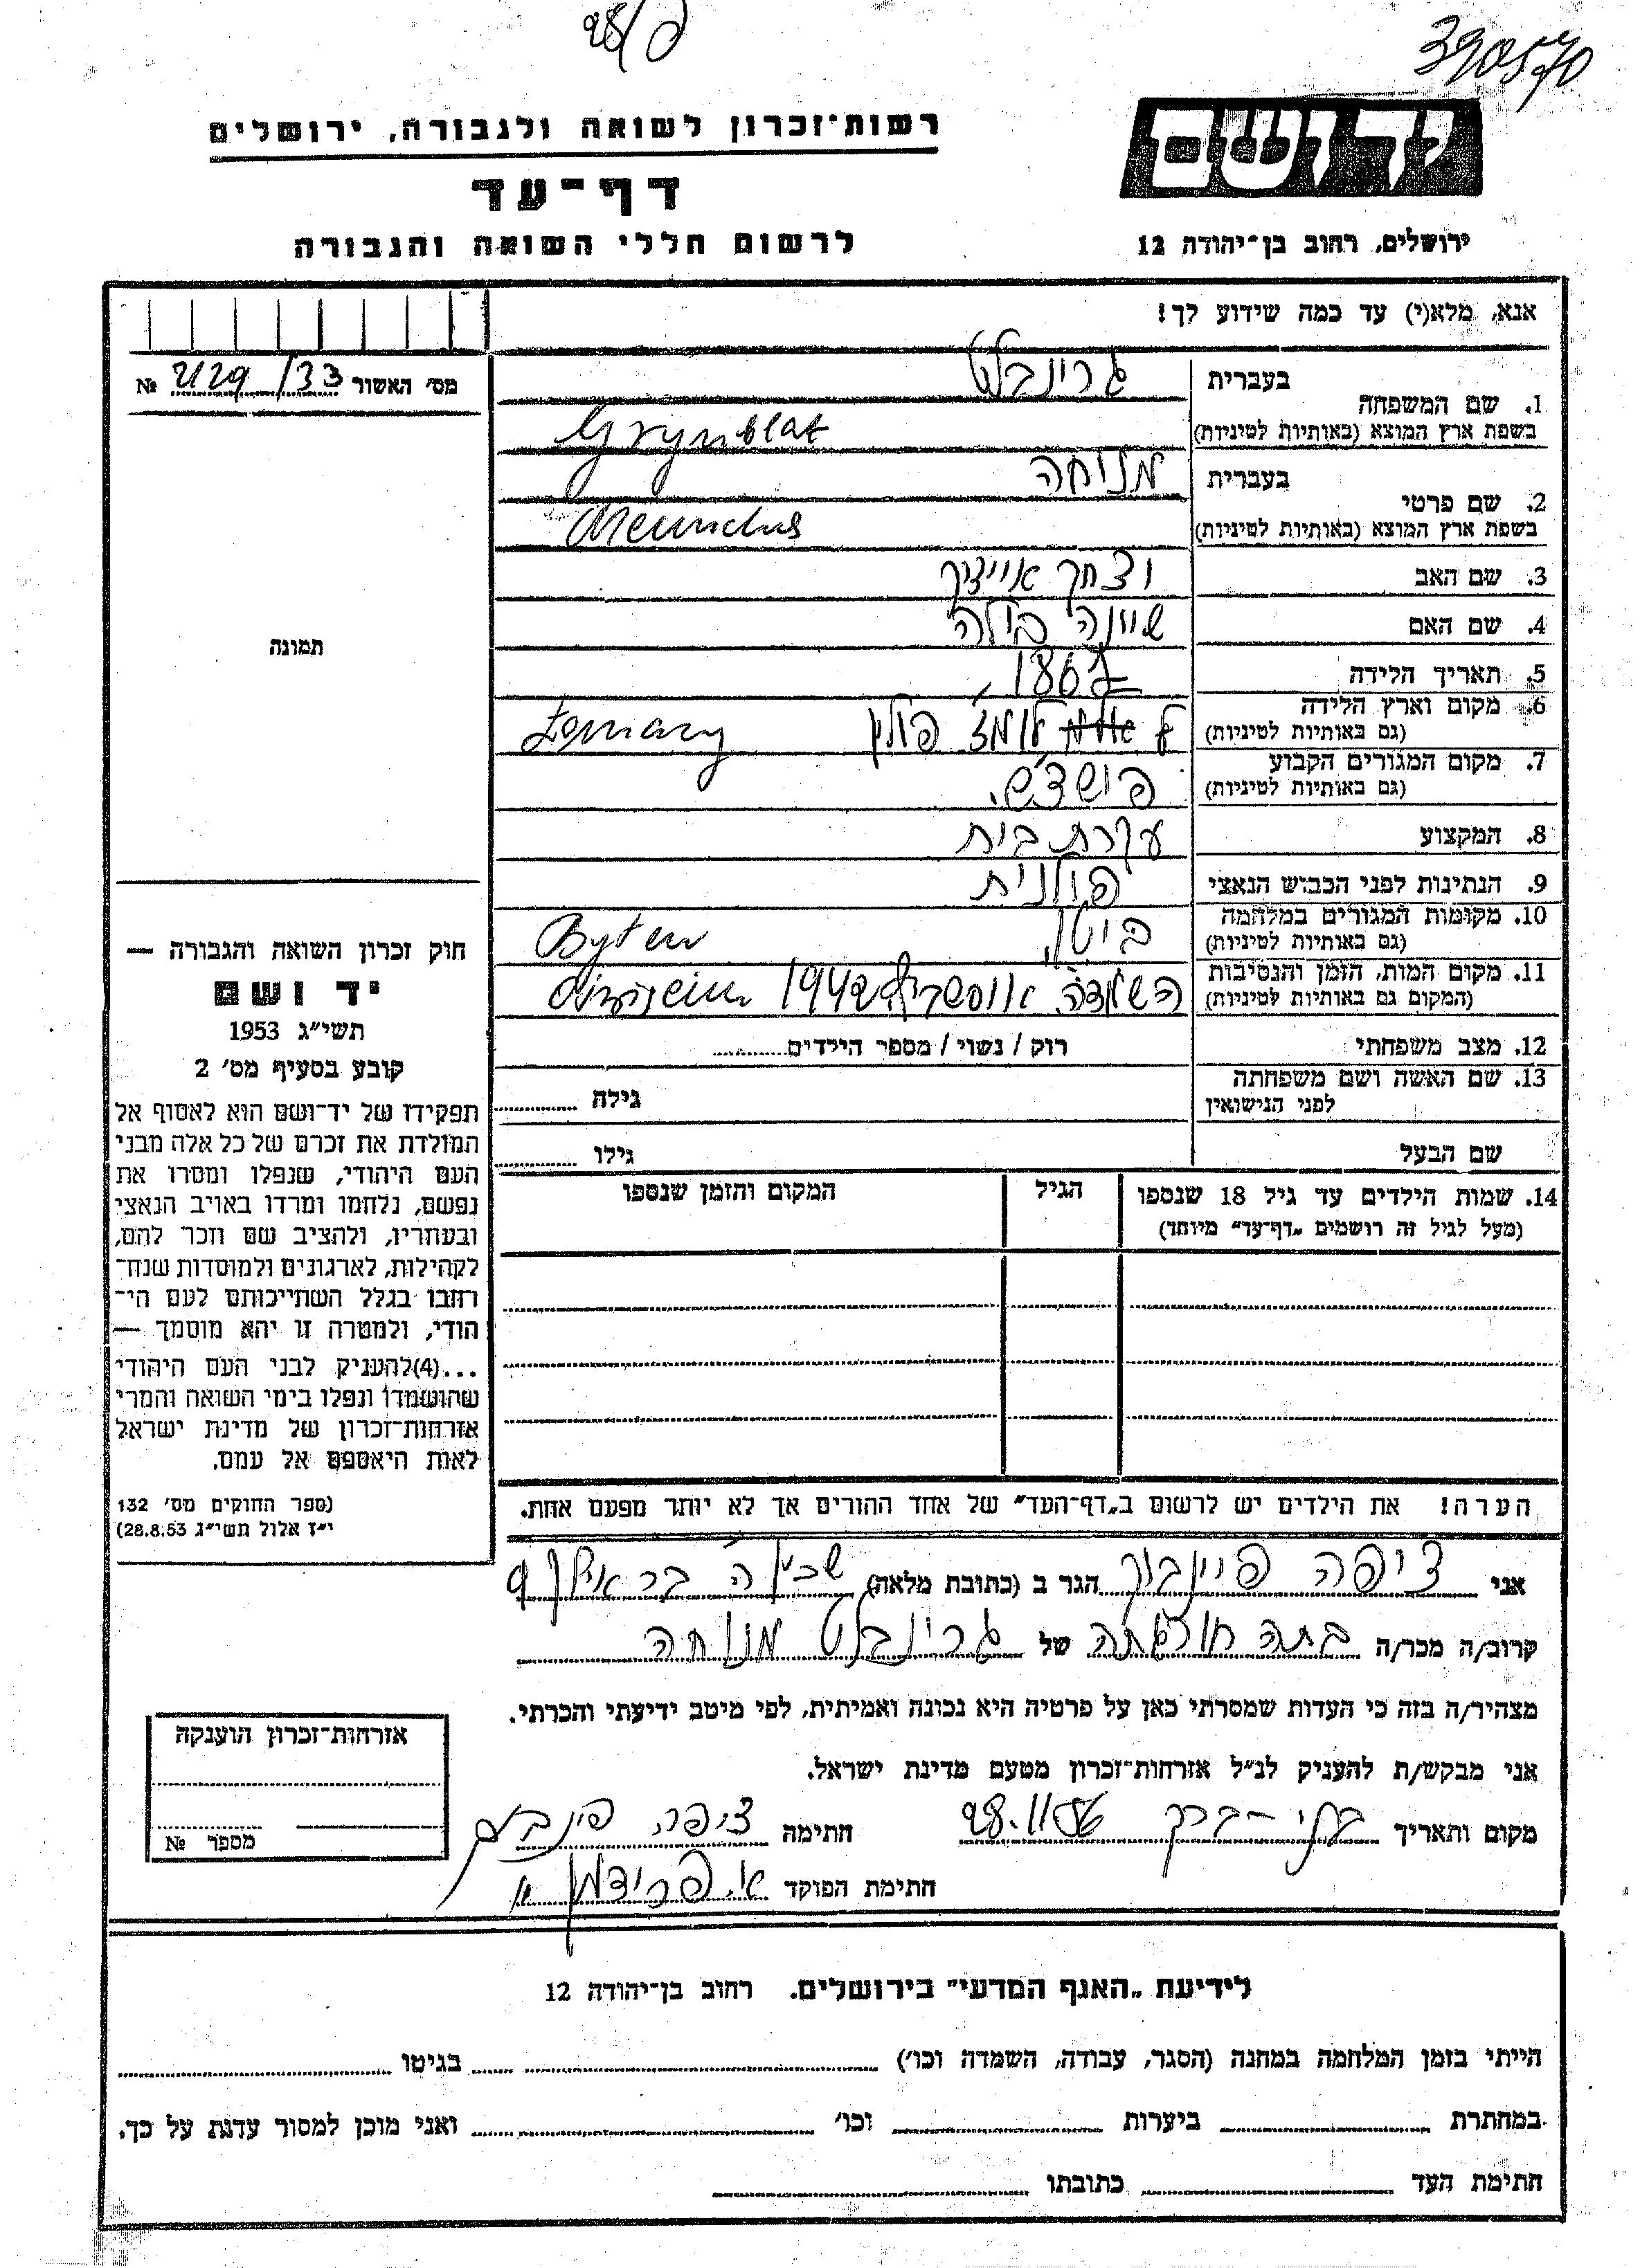 390570
רשות־זכרון לשואה ולגבורה, ירושלים
יד ושם
דף־עד
ירושלים, רחוב בן־יהודה 12
לרשום חללי השואה והגבורה
אנא, מלא(י) עד כמה שידוע לך!
מס׳ האשור 2129/33 №
תמונה
1. שם המשפחה בעברית גרינבלט
בשפת ארץ המוצא (באותיות לטיניות) Grynblat
2. שם פרטי בעברית מנוחה
בשפת ארץ המוצא (באותיות לטיניות)
3. שם האב יצחק
4. שם האם שיינה ביילה
5. תאריך הלידה 1867
6. מקום וארץ הלידה פולין
(גם באותיות לטיניות)
7. מקום המגורים הקבוע
(גם באותיות לטיניות)
8. המקצוע עקרת בית
9. הנתינות לפני הכבוש הנאצי פולנית
10. מקומות המגורים במלחמה ביטן Byten
(גם באותיות לטיניות)
11. מקום המות, הזמן והנסיבות השמדה 1942
(המקום גם באותיות לטיניות)
12. מצב משפחתי רוק / נשוי / מספר הילדים
13. שם האשה ושם משפחתה
לפני הנישואין גילה
שם הבעל גילו
14. שמות הילדים עד גיל 18 שנספו הגיל המקום והזמן שנספו
(מעל לגיל זה רושמים „דף־עד״ מיוחד)
הערה! את הילדים יש לרשום ב„דף־העד״ של אחד ההורים אך לא יותר מפעם אחת.
חוק זכרון השואה והגבורה —
יד ושם
תשי״ג 1953
קובע בסעיף מס׳ 2
תפקידו של יד־ושם הוא לאסוף אל
המולדת את זכרם של כל אלה מבני
העם היהודי, שנפלו ומסרו את
נפשם, נלחמו ומרדו באויב הנאצי
ובעוזריו, ולהציב שם וזכר להם,
לקהילות, לארגונים ולמוסדות שנח־
רובו בגלל השתייכותם לעם הי־
הודי, ולמטרה זו יהא מוסמך —
...(4)להעניק לבני העם היהודי
שהושמדו ונפלו בימי השואה והמרי
אזרחות־זכרון של מדינת ישראל
לאות היאספם אל עמם.
(ספר החוקים מס׳ 132
י״ז אלול תשי״ג 28.8.53)
אני ציפה פיינבוך הגר ב (כתובת מלאה)
קרוב/ה מכר/ה של גרינבלט מנוחה
מצהיר/ה בזה כי העדות שמסרתי כאן על פרטיה היא נכונה ואמיתית, לפי מיטב ידיעתי והכרתי.
אני מבקש/ת להעניק לנ״ל אזרחות־זכרון מטעם מדינת ישראל.
מקום ותאריך בני-ברק 28.11.56 חתימה ציפה
חתימת הפוקד א. פרידמן
אזרחות־זכרון הוענקה
מספר №
לידיעת „האגף המדעי״ בירושלים. רחוב בן־יהודה 12
הייתי בזמן המלחמה במחנה (הסגר, עבודה, השמדה וכו׳) בגיטו
במחתרת ביערות וכו׳ ואני מוכן למסור עדות על כך.
חתימת העד כתובתו